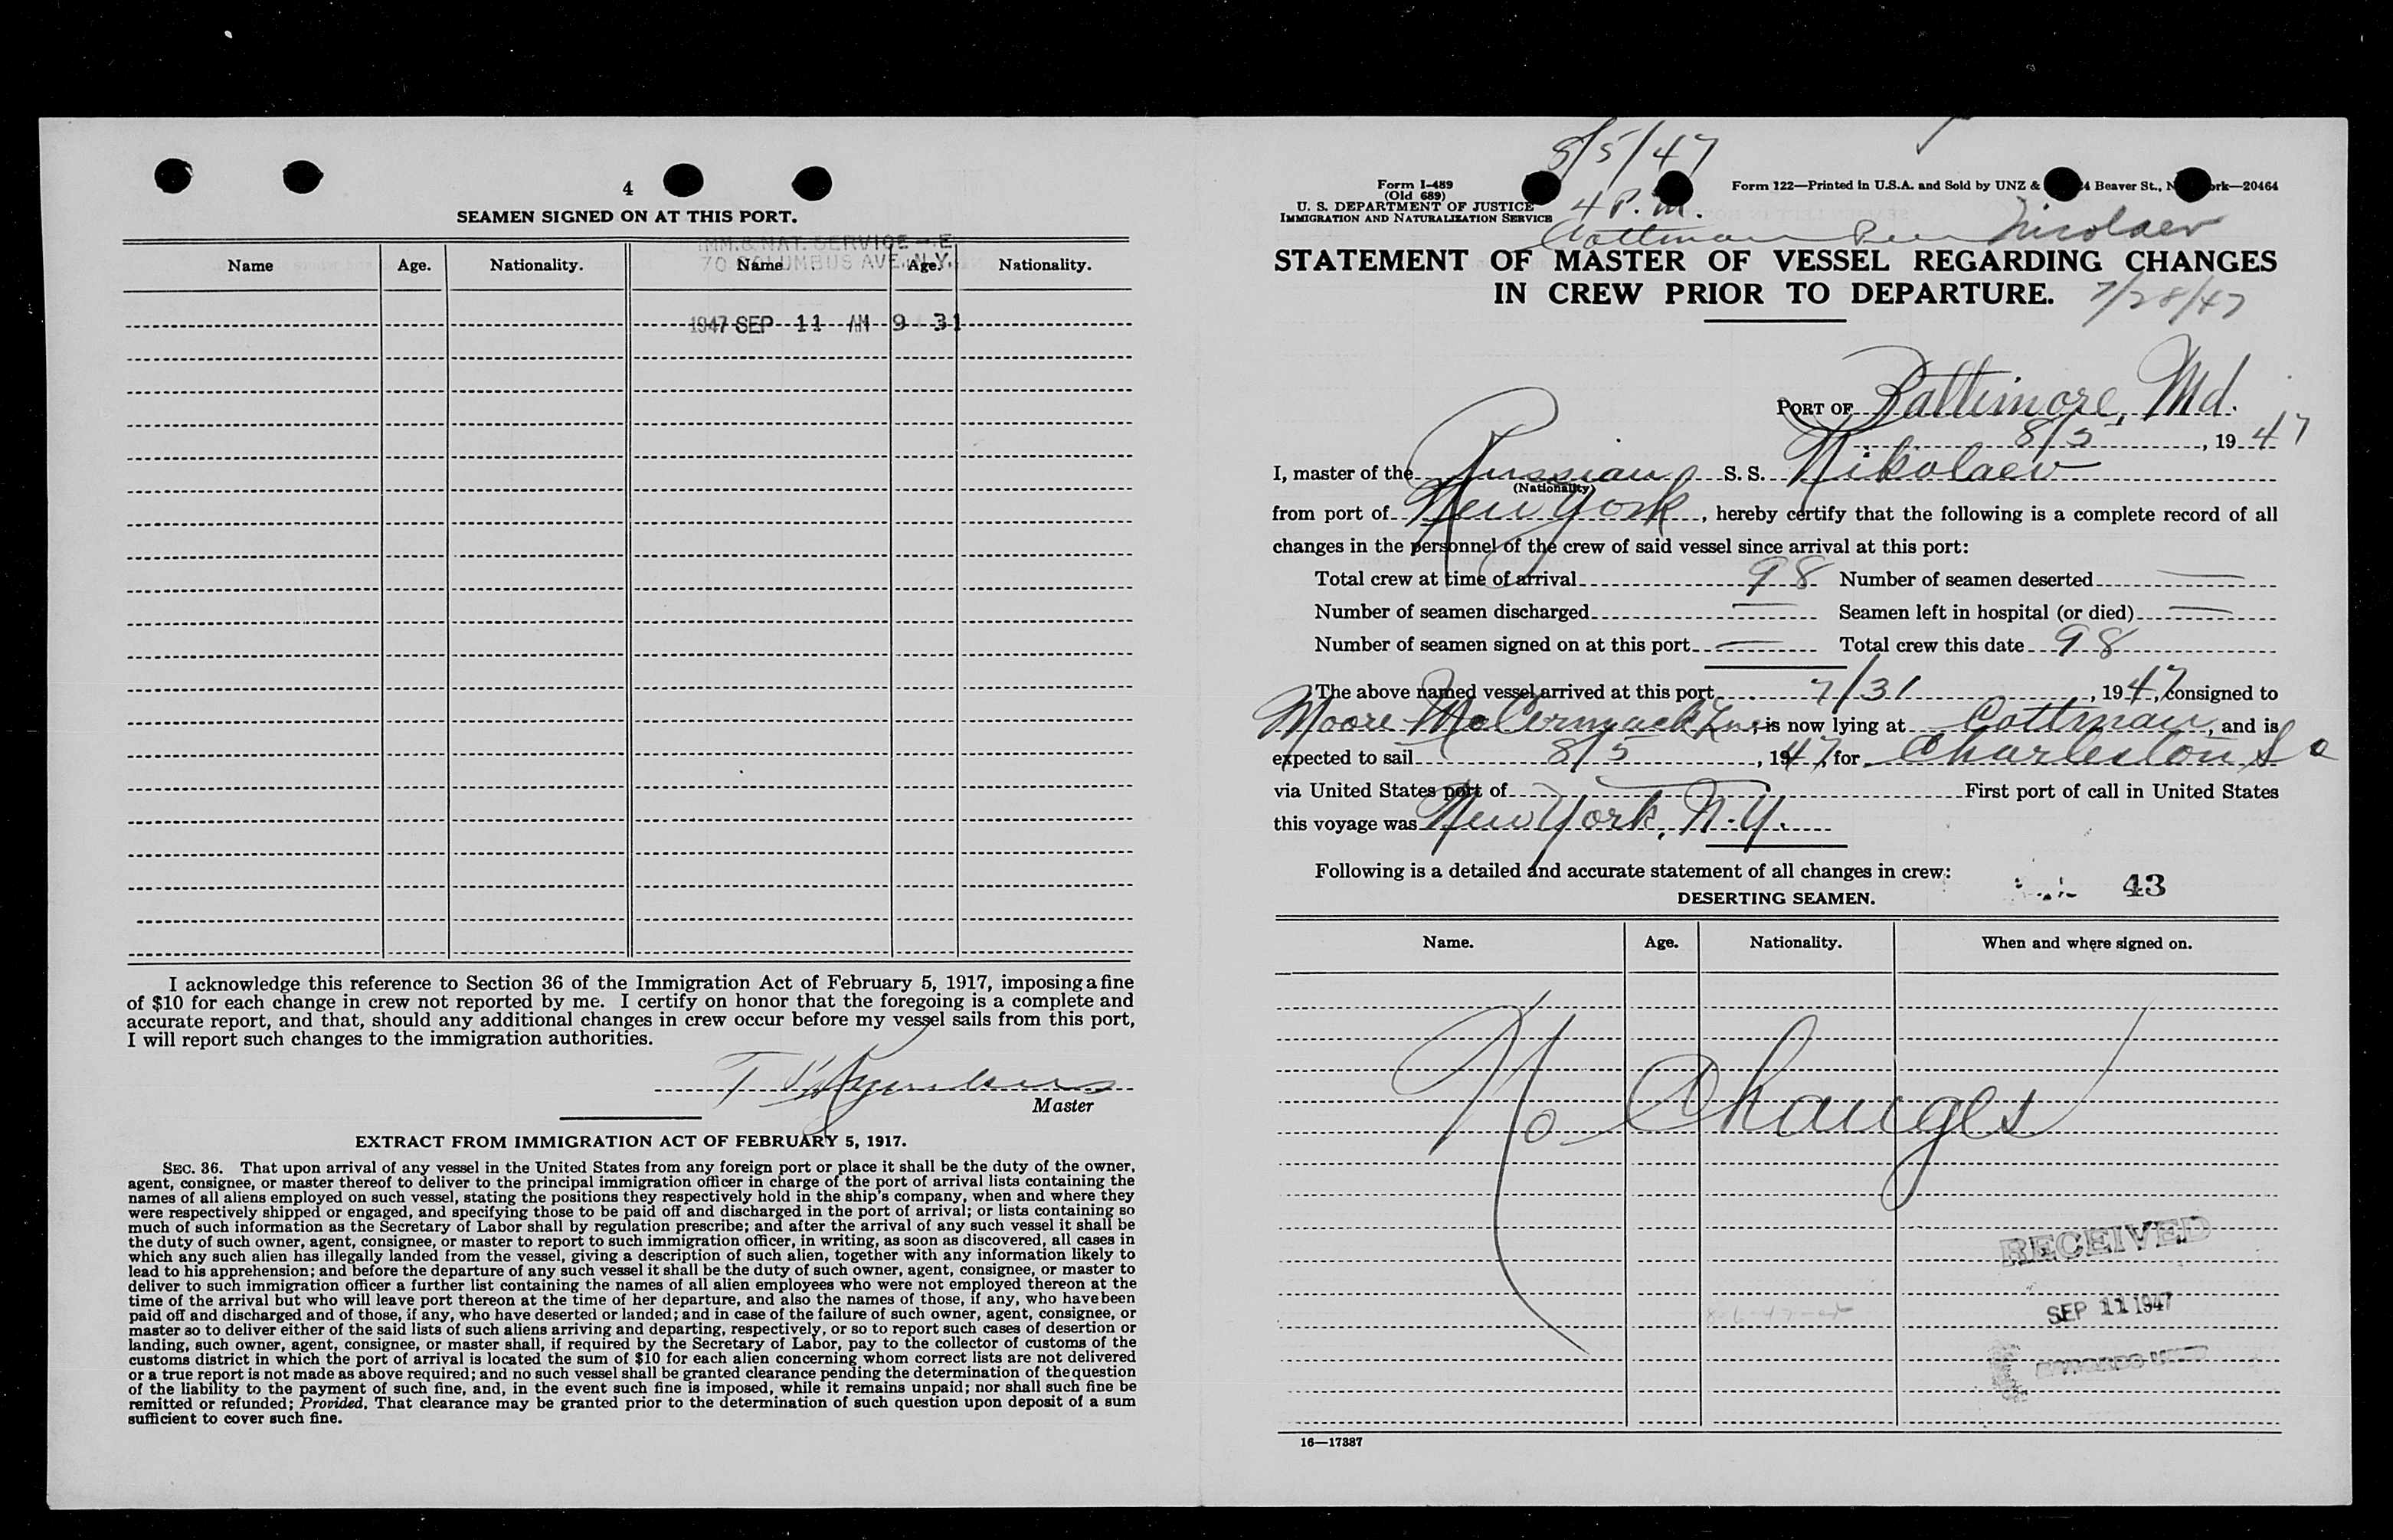 4
SEAMEN SIGNED ON AT THIS PORT.
IMM. & NAT. SERVICE — E
70 COLUMBUS AVE. N.Y.
Name Age. Nationality. Name Age. Nationality.
1947 SEP 11 AM 9 31
I acknowledge this reference to Section 36 of the Immigration Act of February 5, 1917, imposing a fine
of $10 for each change in crew not reported by me. I certify on honor that the foregoing is a complete and
accurate report, and that, should any additional changes in crew occur before my vessel sails from this port,
I will report such changes to the immigration authorities.
Master
EXTRACT FROM IMMIGRATION ACT OF FEBRUARY 5, 1917.
SEC. 36. That upon arrival of any vessel in the United States from any foreign port or place it shall be the duty of the owner,
agent, consignee, or master thereof to deliver to the principal immigration officer in charge of the port of arrival lists containing the
names of all aliens employed on such vessel, stating the positions they respectively hold in the ship's company, when and where they
were respectively shipped or engaged, and specifying those to be paid off and discharged in the port of arrival; or lists containing so
much of such information as the Secretary of Labor shall by regulation prescribe; and after the arrival of any such vessel it shall be
the duty of such owner, agent, consignee, or master to report to such immigration officer, in writing, as soon as discovered, all cases in
which any such alien has illegally landed from the vessel, giving a description of such alien, together with any information likely to
lead to his apprehension; and before the departure of any such vessel it shall be the duty of such owner, agent, consignee, or master to
deliver to such immigration officer a further list containing the names of all alien employees who were not employed thereon at the
time of the arrival but who will leave port thereon at the time of her departure, and also the names of those, if any, who have been
paid off and discharged and of those, if any, who have deserted or landed; and in case of the failure of such owner, agent, consignee, or
master so to deliver either of the said lists of such aliens arriving and departing, respectively, or so to report such cases of desertion or
landing, such owner, agent, consignee, or master shall, if required by the Secretary of Labor, pay to the collector of customs of the
customs district in which the port of arrival is located the sum of $10 for each alien concerning whom correct lists are not delivered
or a true report is not made as above required; and no such vessel shall be granted clearance pending the determination of the question
of the liability to the payment of such fine, and, in the event such fine is imposed, while it remains unpaid; nor shall such fine be
remitted or refunded; Provided, That clearance may be granted prior to the determination of such question upon deposit of a sum
sufficient to cover such fine.
8/5/47
4 P.M.
Form I-489
(Old 689)
U. S. DEPARTMENT OF JUSTICE
IMMIGRATION AND NATURALIZATION SERVICE
Form 122—Printed in U.S.A. and Sold by UNZ & 4 Beaver St., N ork—20464
Cottman Pier Nicolaev
STATEMENT OF MASTER OF VESSEL REGARDING CHANGES
IN CREW PRIOR TO DEPARTURE.
7/28/47
PORT OF Baltimore, Md.
8/5, 1947
I, master of the Russian S. S. Nikolaev
(Nationality)
from port of New York, hereby certify that the following is a complete record of all
changes in the personnel of the crew of said vessel since arrival at this port:
Total crew at time of arrival 98 Number of seamen deserted —
Number of seamen discharged — Seamen left in hospital (or died) —
Number of seamen signed on at this port — Total crew this date 98
The above named vessel arrived at this port 7/31, 1947, consigned to
Moore-McCormack Line, is now lying at Cottman, and is
expected to sail 8/5, 1947, for Charleston
via United States port of — First port of call in United States
this voyage was New York, N.Y.
Following is a detailed and accurate statement of all changes in crew:
43
DESERTING SEAMEN.
Name. Age. Nationality. When and where signed on.
No Changes
RECEIVED
SEP 11 1947
16—17387